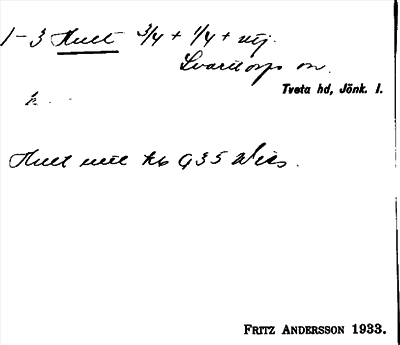 1-3 Hult 3/4 + 1/4 + utj.
Svarttorps sn.
Tveta hd, Jönk. l.
h. . .
Hult utit kb 935 Wiks.
FRITZ ANDERSSON 1933.